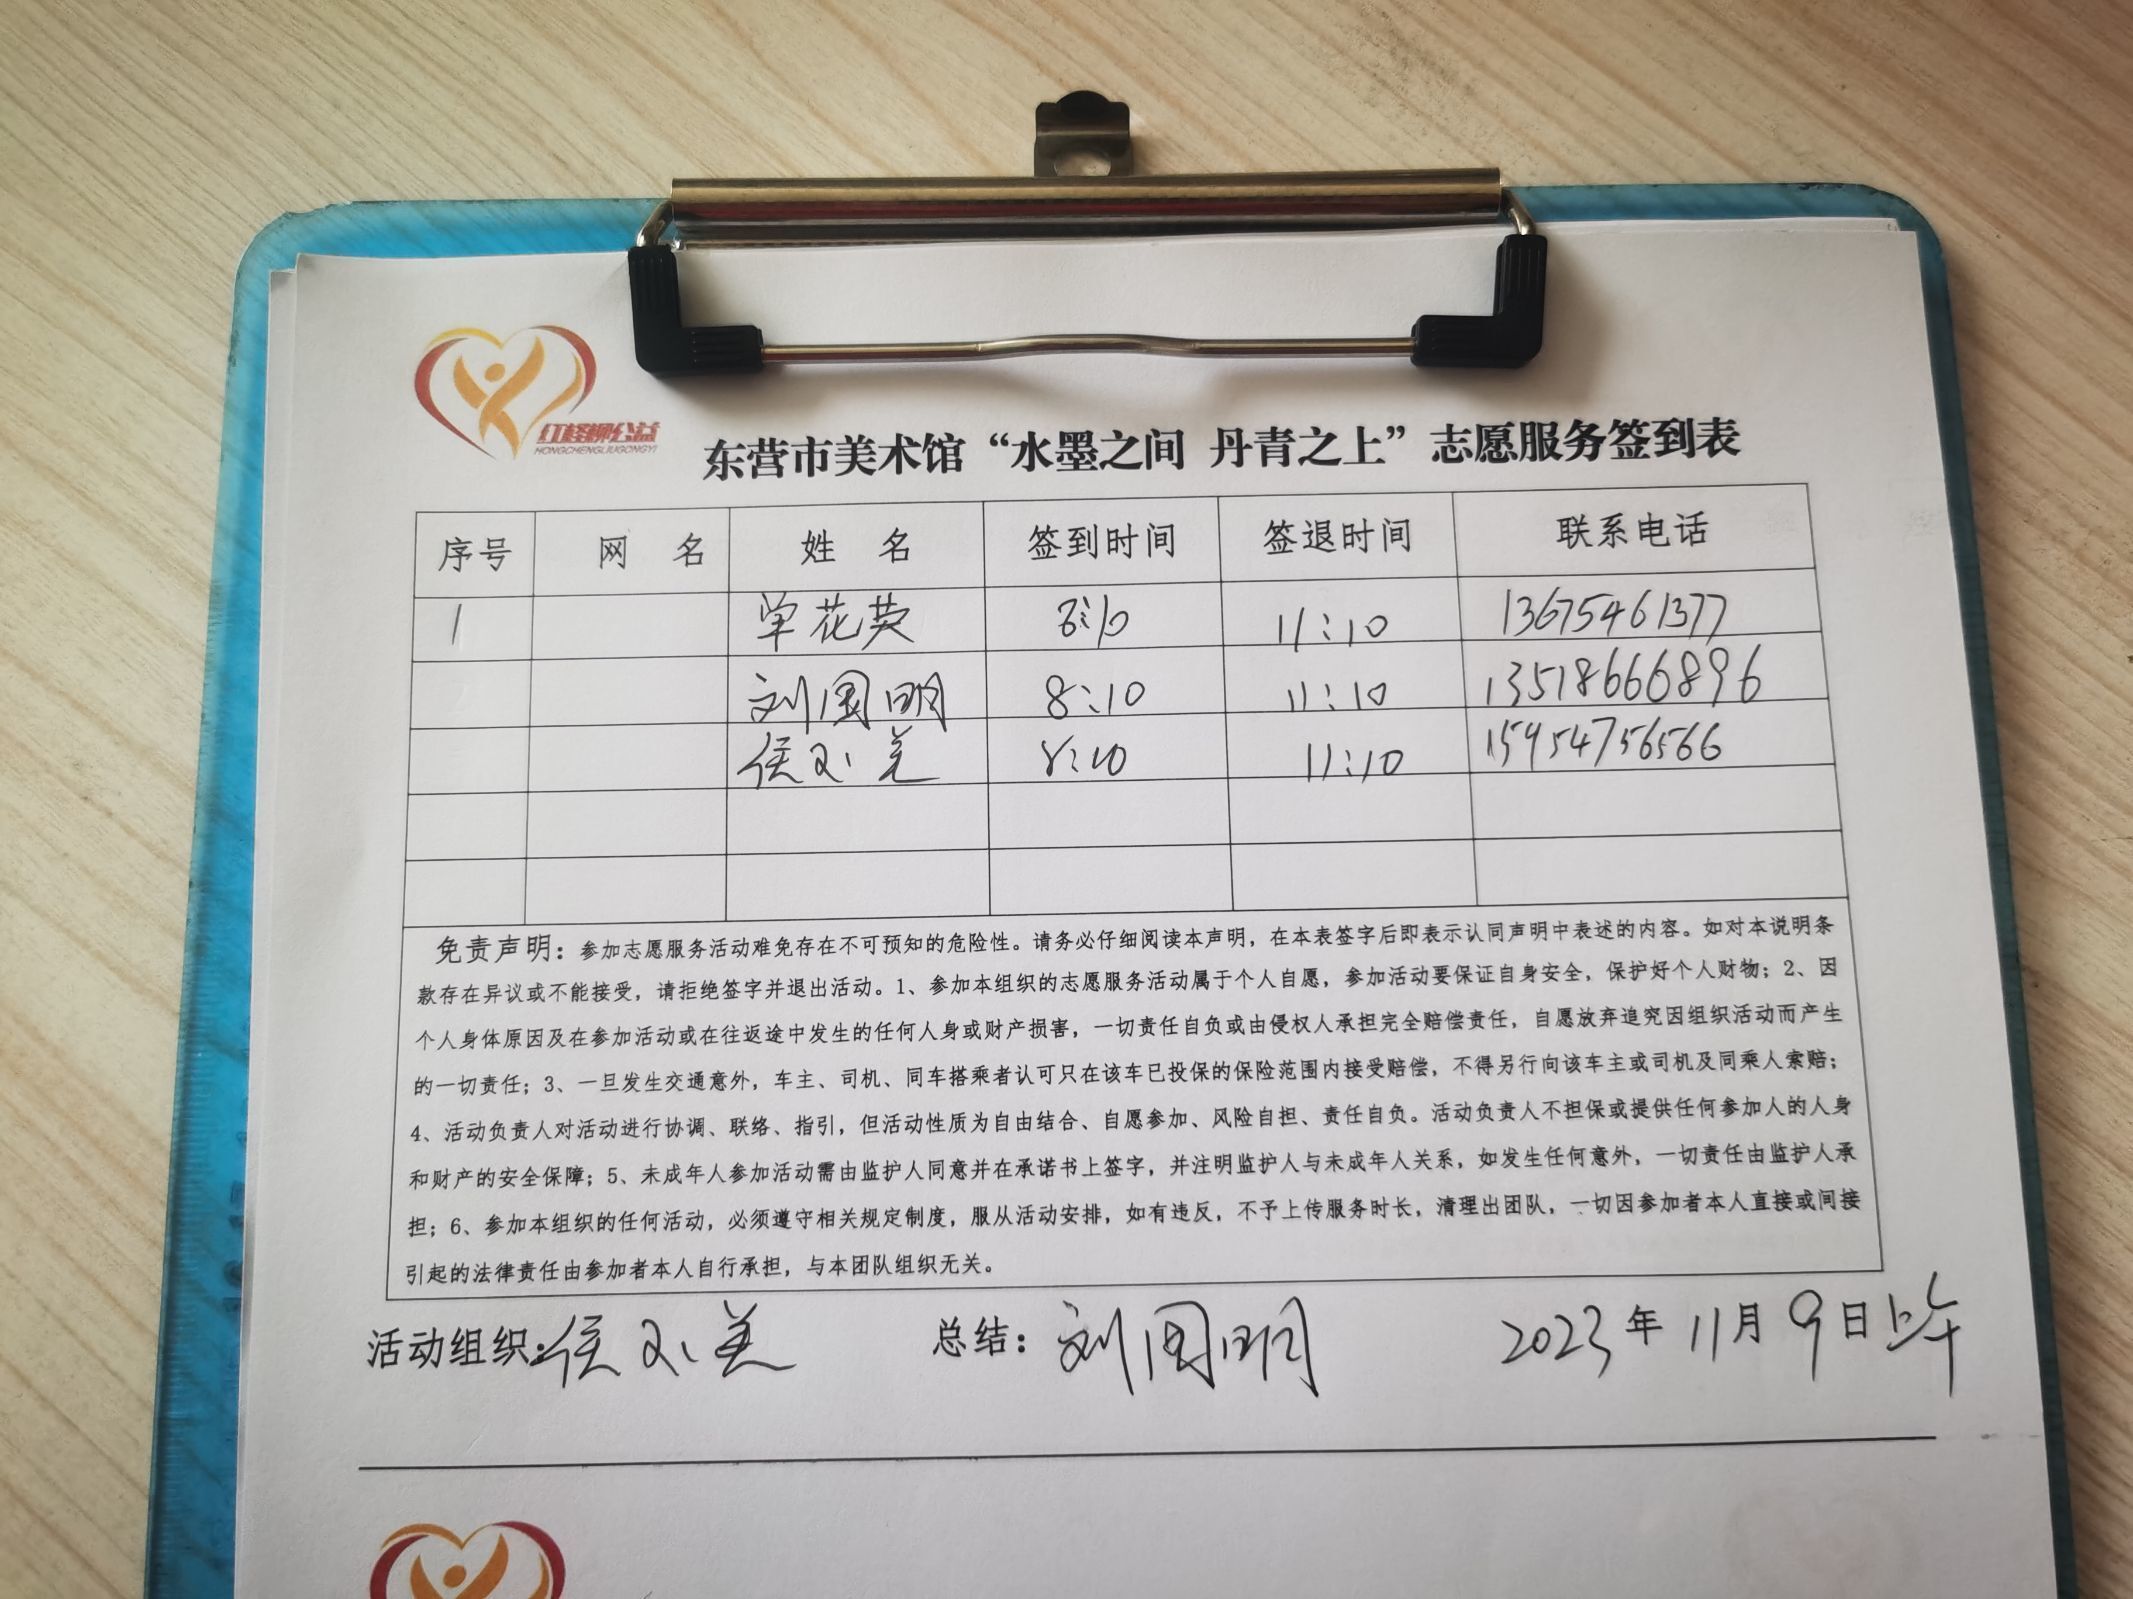 红柽柳公益
HONGCHENGLIUGONGYI
东营市美术馆“水墨之间 丹青之上”志愿服务签到表
序号 网 名 姓 名 签到时间 签退时间 联系电话
1 单花荧 8:10 11:10 13675461377
刘国明 8:10 11:10 13518666896
侯 美 8:10 11:10 15954756566
免责声明：参加志愿服务活动难免存在不可预知的危险性。请务必仔细阅读本声明，在本表签字后即表示认同声明中表述的内容。如对本说明条
款存在异议或不能接受，请拒绝签字并退出活动。1、参加本组织的志愿服务活动属于个人自愿，参加活动要保证自身安全，保护好个人财物；2、因
个人身体原因及在参加活动或在往返途中发生的任何人身或财产损害，一切责任自负或由侵权人承担完全赔偿责任，自愿放弃追究因组织活动而产生
的一切责任；3、一旦发生交通意外，车主、司机、同车搭乘者认可只在该车已投保的保险范围内接受赔偿，不得另行向该车主或司机及同乘人索赔；
4、活动负责人对活动进行协调、联络、指引，但活动性质为自由结合、自愿参加、风险自担、责任自负。活动负责人不担保或提供任何参加人的人身
和财产的安全保障；5、未成年人参加活动需由监护人同意并在承诺书上签字，并注明监护人与未成年人关系，如发生任何意外，一切责任由监护人承
担；6、参加本组织的任何活动，必须遵守相关规定制度，服从活动安排，如有违反，不予上传服务时长，清理出团队，一切因参加者本人直接或间接
引起的法律责任由参加者本人自行承担，与本团队组织无关。
活动组织：侯 美 总结：刘国明 2023年11月9日上午